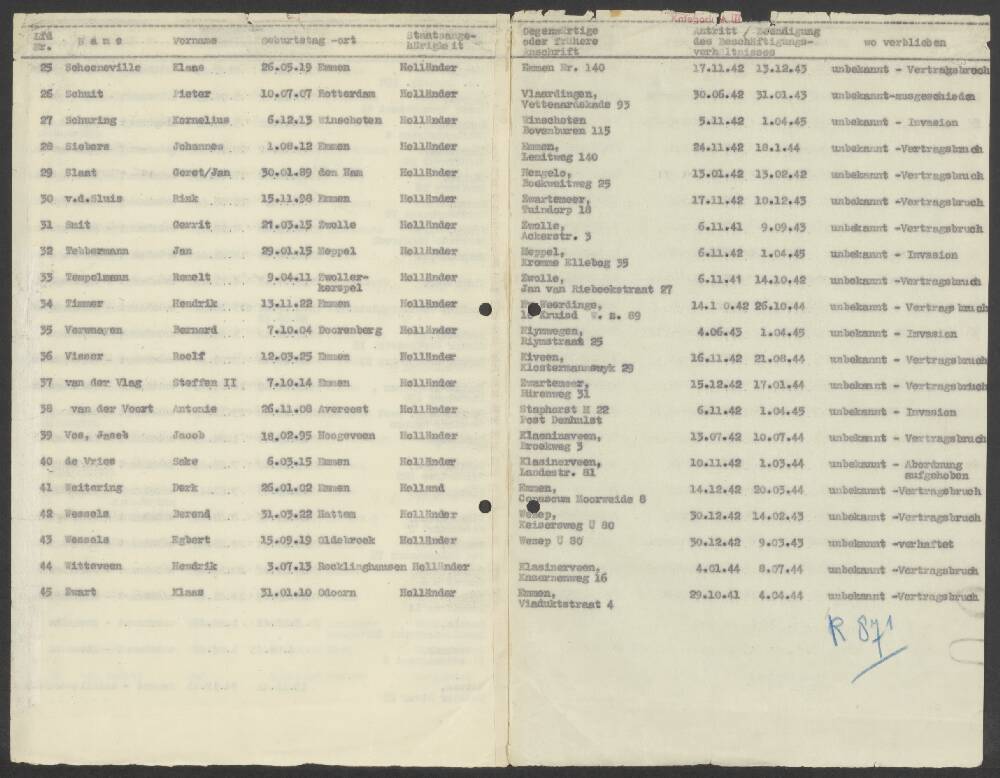 Kategorie A III
Lfd Nr. Name Vorname Geburtstag -ort Staatsange-hörigkeit Gegenwärtige oder frühere Anschrift Antritt / Beendigung des Beschäftigungs-verhältnisses wo verblieben
25 Schooneville Klaas 26.05.19 Emmen Holländer Emmen Nr. 140 17.11.42 13.12.43 unbekannt - Vertragsbruch
26 Schuit Pieter 10.07.07 Rotterdam Holländer Vlaardingen, 30.06.42 31.01.43 unbekannt-ausgeschieden
Vettenardskade 93
27 Schuring Kornelius 6.12.13 Winschoten Holländer Winschoten 5.11.42 1.04.45 unbekannt - Invasion
Bovenburen 115
28 Siebers Johannes 1.08.12 Emmen Holländer Emmen, 24.11.42 18.1.44 unbekannt -Vertragsbruch
Lemitweg 140
29 Slaat Geret/Jan 30.01.89 den Ham Holländer Hengelo, 13.01.42 13.02.42 unbekannt -Vertragsbruch
Boekweitweg 25
30 v.d.Sluis Rink 15.11.98 Emmen Holländer Zwartemeer, 17.11.42 10.12.43 unbekannt -Vertragsbruch
Tuindorp 18
31 Smit Gerrit 21.03.15 Zwolle Holländer Zwolle, 6.11.41 9.09.43 unbekannt -Vertragsbruch
Ackerstr. 3
32 Tebbermann Jan 29.01.15 Meppel Holländer Meppel, 6.11.42 1.04.45 unbekannt - Invasion
Kromme Ellebog 35
33 Tempelmann Romelt 9.04.11 Zwoller- Holländer Zwolle, 6.11.41 14.10.42 unbekannt -Vertragsbruch
kerspel Jan van Riebeekstraat 27
34 Timmer Hendrik 13.11.22 Emmen Holländer Weerdinge, 14.1 0.42 26.10.44 unbekannt - Vertragsbruch
Kruisd W. n. 89
35 Verwoayen Bernard 7.10.04 Doorenberg Holländer Niymwegen, 4.06.43 1.04.45 unbekannt - Invasion
Riymstraat 25
36 Visser Roelf 12.03.25 Emmen Holländer Kiveen, 16.11.42 21.08.44 unbekannt - Vertragsbruch
Klostermannswyk 29
37 van der Vlag Steffen II 7.10.14 Emmen Holländer Zwartemeer, 15.12.42 17.01.44 unbekannt - Vertragsbruch
Hirenweg 31
38 van der Voort Antonie 26.11.08 Avereest Holländer Staphorst M 22 6.11.42 1.04.45 unbekannt - Invasion
Post Denhulst
39 Vos, Jacob Jacob 18.02.95 Hoogeveen Holländer Klasinaveen, 13.07.42 10.07.44 unbekannt - Vertragsbruch
Broekweg 3
40 de Vries Sake 6.03.15 Emmen Holländer Klasinerveen, 10.11.42 1.03.44 unbekannt - Abordnung
Landestr. 81 aufgehoben
41 Weitering Derk 26.01.02 Emmen Holland Emmen, 14.12.42 20.03.44 unbekannt -Vertragsbruch
Moorweide 8
42 Wessels Berend 31.03.22 Hattem Holländer Wezep, 30.12.42 14.02.43 unbekannt -Vertragsbruch
Keisersweg U 80
43 Wessels Egbert 15.09.19 Oldebroek Holländer Wezep U 80 30.12.42 9.03.43 unbekannt -verhaftet
44 Witteveen Hendrik 3.07.13 Recklinghausen Holländer Klasinerveen, 4.01.44 8.07.44 unbekannt -Vertragsbruch
Knsernenweg 16
45 Zwart Klaas 31.01.10 Odoorn Holländer Emmen, 29.10.41 4.04.44 unbekannt -Vertragsbruch
Viaduktstraat 4
R 871